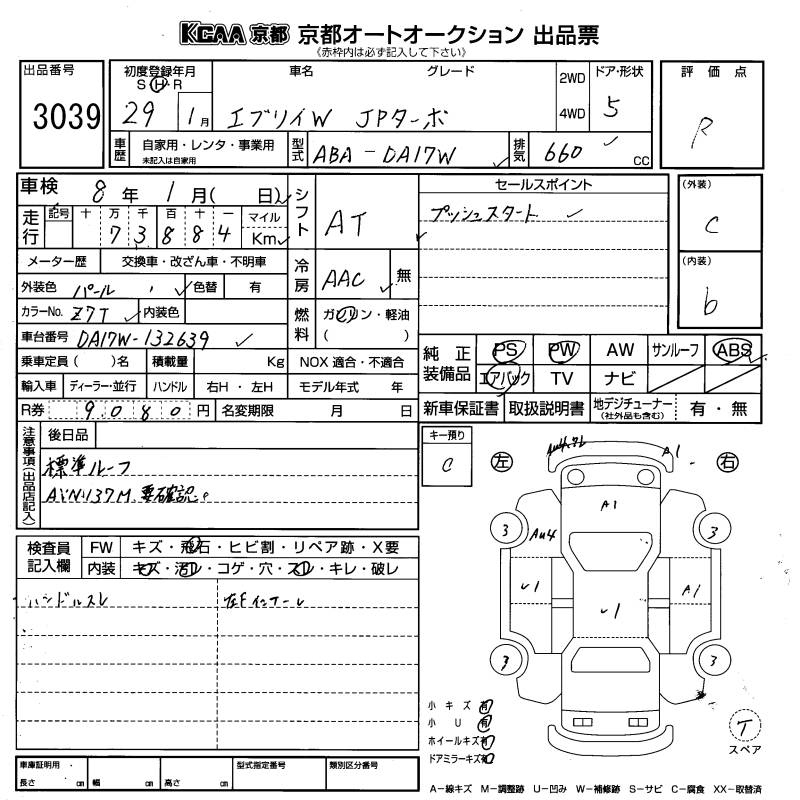 KCAA 京都 京都オートオークション 出品票
《赤枠内は必ず記入して下さい》
出品番号 3039
初度登録年月 S H R 29 1月
車名 グレード
エブリイW JPターボ
2WD 4WD
ドア・形状 5
評価点 R
車歴 自家用・レンタ・事業用 未記入は自家用
型式 ABA-DA17W
排気 660 CC
車検 8年 1月( 日)
シフト AT
セールスポイント
プッシュスタート
(外装) C
(内装) b
走行 記号 十 万 千 百 十 一 マイル Km
73884
メーター歴 交換車・改ざん車・不明車
冷房 AAC 無
外装色 パール 色替 有
カラーNo. Z7T 内装色
燃料 ガソリン・軽油 ( )
車台番号 DA17W-132639
乗車定員 ( )名 積載量 Kg NOX 適合・不適合
純正装備品 PS PW AW サンルーフ ABS
エアバック TV ナビ
輸入車 ディーラー・並行 ハンドル 右H・左H モデル年式 年
R券 9080円 名変期限 月 日
新車保証書 取扱説明書 地デジチューナー (社外品も含む) 有・無
注意事項(出品店記入) 後日品
標準ルーフ
要確認。
キー預り C
左 右
A1
A1
3 Au4 3
U1 A1
U1
3 3
検査員記入欄 FW キズ・飛石・ヒビ割・リペア跡・X要
内装 キズ・汚レ・コゲ・穴・スレ・キレ・破レ
ハンドルスレ
小キズ 有
小U 有
ホイールキズ 有
ドアミラーキズ 有
T スペア
車庫証明用 長さ cm 幅 cm 高さ cm 型式指定番号 類別区分番号
A－線キズ M－調整跡 U－凹み W－補修跡 S－サビ C－腐食 XX－取替済